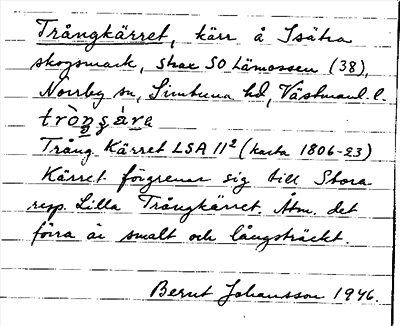 Trångkärret, kärr å Isätra
skogsmark, strax SO Lämossen (38),
Norrby sn, Simtuna hd, Västmanl. l.
tròŋçä̀re
Trång Kärret LSA 11² (karta 1806-23)
Kärret förgrenar sig till Stora
resp. Lilla Trångkärret. Åtm. det
förra är smalt och långsträckt.
Bernt Johansson 1946.